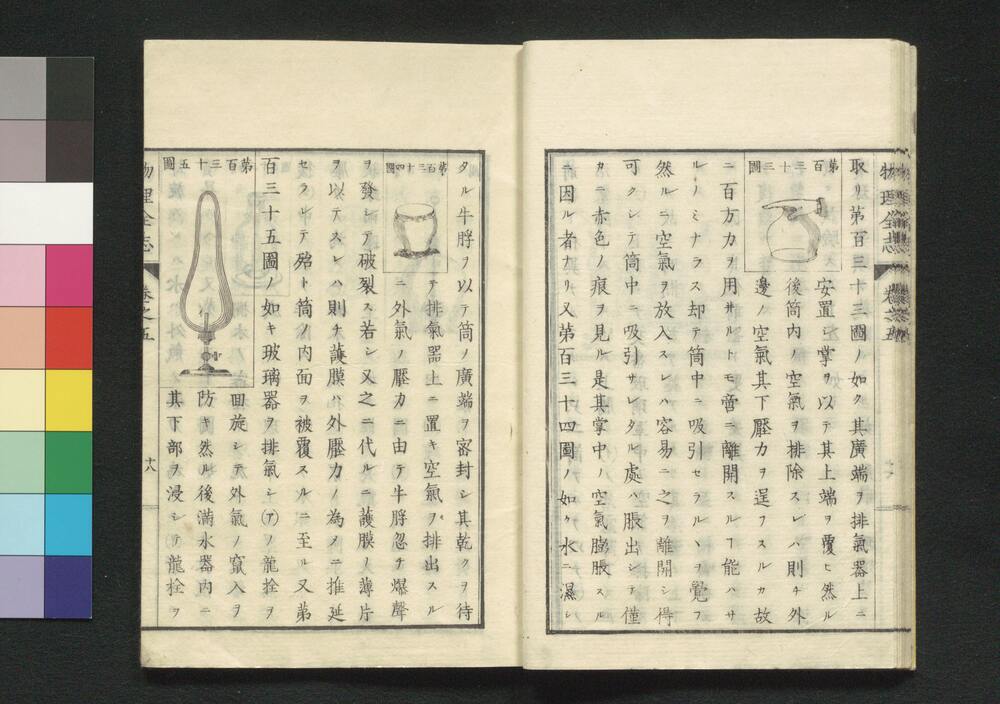 物理全志　卷之五
取リ第百三十三圖ノ如ク其廣端ヲ排氣器上ニ
安置シ掌ヲ以テ其上端ヲ覆ヒ然ル
後筒内ノ空氣ヲ排除スレハ則チ外
邊ノ空氣其下壓力ヲ逞フスルカ故
第百三十三圖
ニ百方力ヲ用サルトモ啻ニ離開スルヿ能ハサ
ルノミナラス却テ筒中ニ吸引セラルヽヲ覺フ
然ルニ空氣ヲ放入スレハ容易ニ之ヲ離開シ得
可クシテ筒中ニ吸引サレタル處ハ脹出シテ僅
カニ赤色ノ痕ヲ見ル是其掌中ノ空氣膨脹スル
ニ因ル者ナリ又第百三十四圖ノ如ク水ニ濕シ
タル牛脬ヲ以テ筒ノ廣端ヲ密封シ其乾クヲ待
第百三十四圖
テ排氣器上ニ置キ空氣ヲ排出スル
ニ外氣ノ壓力ニ由テ牛脬忽チ爆聲
ヲ發シテ破裂ス若シ又之ニ代ルニ護膜ノ薄片
ヲ以テスレハ則チ護膜ハ外壓力ノ為メニ推延
セラレテ殆ト筒ノ内面ヲ被覆スルニ至ル又第
百三十五圖ノ如キ玻璃器ヲ排氣シ(ア)ノ龍拴ヲ
第百三十五圖
囬旋シテ外氣ノ竄入ヲ
防キ然ル後滿水器内ニ
其下部ヲ浸シテ龍拴ヲ
物理全志　卷之五　十八